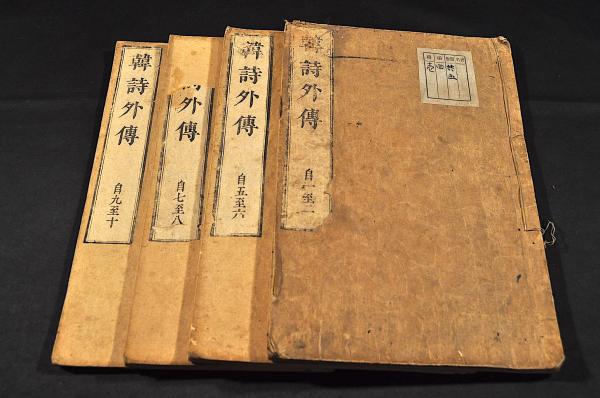 韓詩外傳
自九至十
外傳
自七至八
韓詩外傳
自五至六
韓詩外傳
自一至二